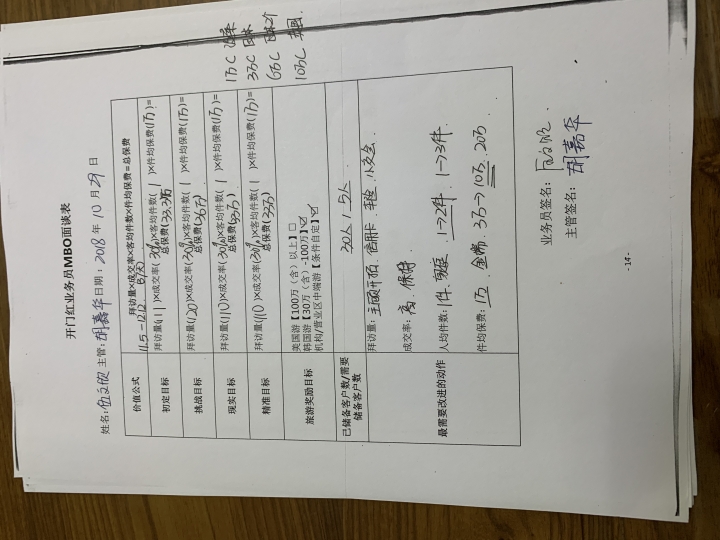 开门红业务员MBO面谈表
姓名: 主管:胡嘉华 日期:2018年10月29日
价值公式
拜访量×成交率×客均件数×件均保费=总保费
11.5-12.12
初定目标
拜访量(111)×成交率(30%)×客均件数(1)×件均保费(1万)=
总保费(33.3万)
挑战目标
拜访量(120)×成交率(30%)×客均件数(1)×件均保费(1万)=
总保费(36万)
现实目标
拜访量(110)×成交率(30%)×客均件数(1)×件均保费(1万)=
总保费(33万)
精准目标
拜访量(110)×成交率(30%)×客均件数(1)×件均保费(1万)=
总保费(33万)
旅游奖励目标
美国游【100万(含)以上】□
韩国游【30万(含)-100万】☑
机构/营业区中端游【条件自定】☑
已储备客户数/需要
储备客户数
30人/5人
最需要改进的动作
拜访量:主顾开拓、信用卡、
成交率:高、保持
人均件数:1件、家庭、1→2件、1→3件、
件均保费:1万、金、3万→10万、20万
1万C
3万C
6万C
10万C
业务员签名:
主管签名:胡嘉华
-14-